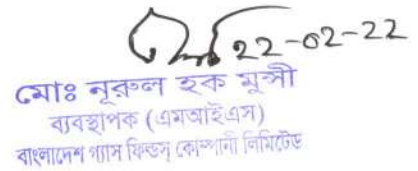 22-02-22
মোঃ নূরুল হক মুন্সী
ব্যবস্থাপক (এমআইএস)
বাংলাদেশ গ্যাস ফিল্ডস্ কোম্পানী লিমিটেড